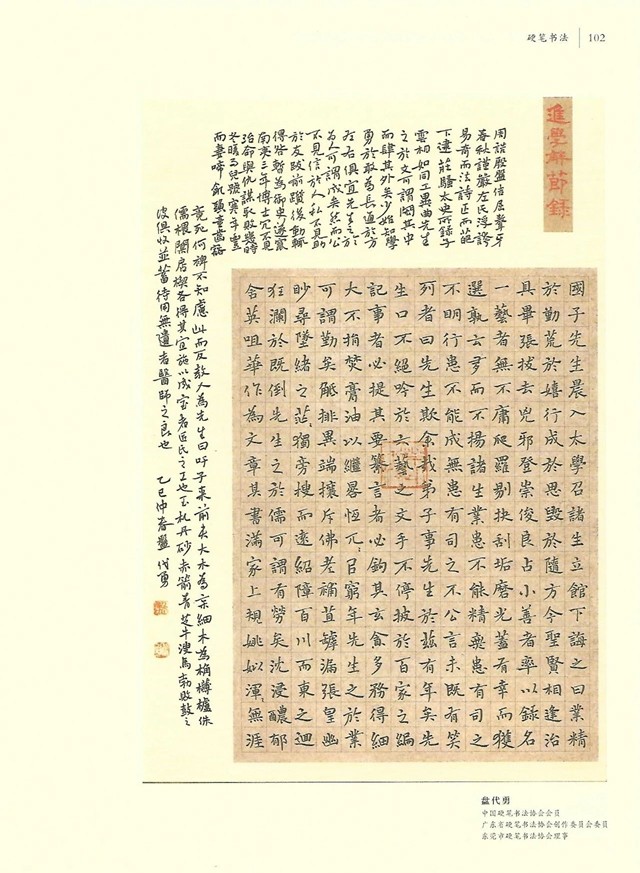 硬笔书法 102
進學解節録
周誥殷盤佶屈聱牙
春秋謹嚴左氏浮誇
易奇而法詩正而葩
下逮莊騷太史所録子
雲相如同工異曲先生
之於文可謂閎其中
而肆其外矣少始知學
勇於敢為長通於方
左右俱宜先生之於
為人可謂成矣然而公
不見信於人私不見助
於友跋前躓後動輒
得咎暫為御史遂竄
南夷三年博士冗不見
治命與仇謀取敗幾時
冬暖而兒號寒年豐
而妻啼飢頭童齒豁
竟死何裨不知慮此而反教人為先生曰吁子來前夫大木為杗細木為桷欂櫨侏
儒椳闑扂楔各得其宜施以成室者匠氏之工也玉札丹砂赤箭青芝牛溲馬勃敗鼓之
皮俱收並蓄待用無遺者醫師之良也 乙巳仲春盤代勇
國子先生晨入太學召諸生立館下誨之曰業精
於勤荒於嬉行成於思毀於隨方今聖賢相逢治
具畢張拔去兇邪登崇俊良占小善者率以録名
一藝者無不庸爬羅剔抉刮垢磨光蓋有幸而獲
選孰云多而不揚諸生業患不能精無患有司之
不明行患不能成無患有司之不公言未既有笑
列者曰先生欺余哉弟子事先生於兹有年矣先
生口不絕吟於六藝之文手不停披於百家之編
記事者必提其要纂言者必鈎其玄貪多務得細
大不捐焚膏油以繼晷恆兀〻以窮年先生之於業
可謂勤矣觝排異端攘斥佛老補苴罅漏張皇幽
眇尋墜緒之茫〻獨旁搜而遠紹障百川而東之迴
狂瀾於既倒先生之於儒可謂有勞矣沈浸醲郁
含英咀華作為文章其書滿家上規姚姒渾〻無涯
盘代勇
中国硬笔书法协会会员
广东省硬笔书法协会创作委员会委员
东莞市硬笔书法协会理事